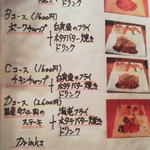 Bコース(1600円)
ポークチャップ + 白身魚のフライ
ホタテバター焼き
ドリンク
Cコース(1600円)
チキンチャップ + 白身魚のフライ
ホタテバター焼き
ドリンク
Dコース(2600円)
ステーキ + 海老フライ
ホタテバター焼き
ドリンク
Drinks